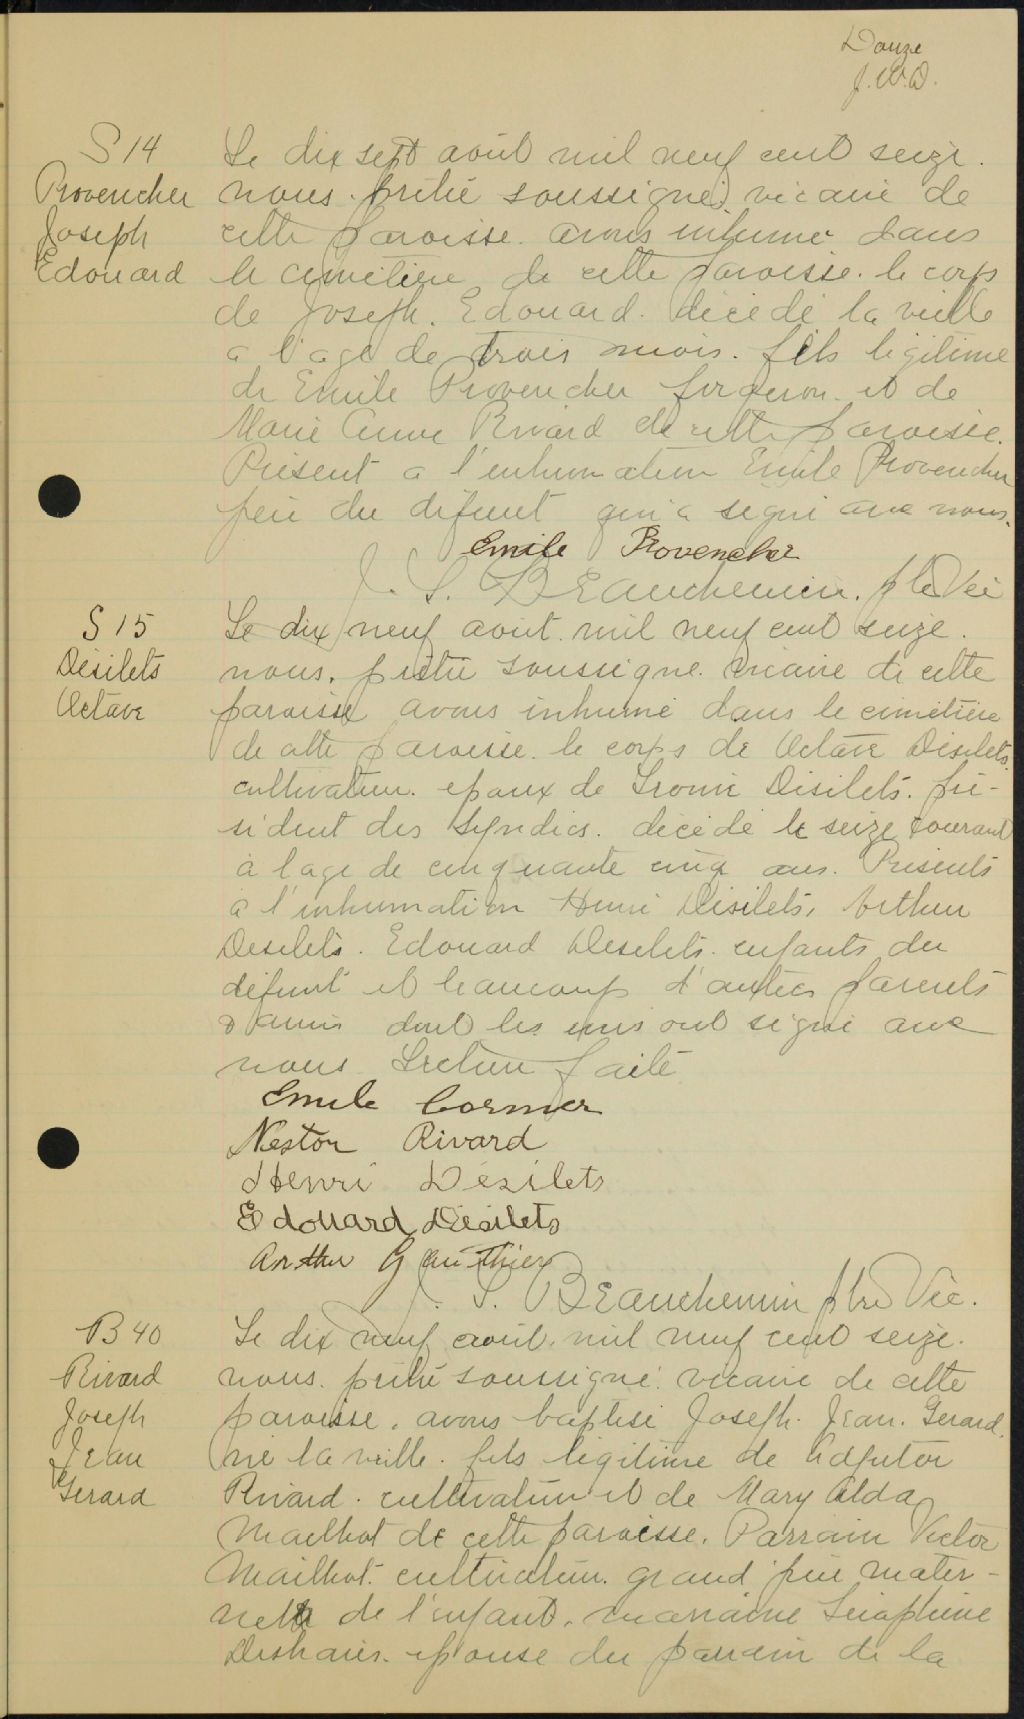 Douze
J.W.D.
S 14
Provencher
Joseph
Edouard
Le dix sept août mil neuf cent seize.
nous. prêtre soussigné, vicaire de
cette paroisse. avons inhumé dans
le cimetière de cette paroisse. le corps
de Joseph. Edouard. décédé la veille
a l'age de trois mois. fils légitime
de Emile Provencher forgeron. et de
Marie Anna Rivard de cette paroisse.
Présent a l'inhumation Emile Provencher
père du défunt qui a signé avec nous.
Emile Provencher
J. S. Beauchemin. ptre Vic
S 15
Désilets
Octave
Le dix neuf août. mil neuf cent seize.
nous. prêtre soussigné. vicaire de cette
paroisse avons inhumé dans le cimétière
de cette paroisse. le corps de Octave Désilets.
cultivateur. epoux de Désilets. pré-
sident des Syndics. décédé le seize courant
à l'age de cinquante cinq ans. Présents
à l'inhumation Henri Désilets, Arthur
Désilets. Edouard Desilets. enfants du
défunt et beaucoup d'autres parents
& amis dont les uns ont signé avec
nous Lecture faite
Emile Cormier
Nestor Rivard
Henri Désilets
Edouard Désilets
Arthur Gauthier
J. S. Beauchemin ptre Vic.
B 40
Rivard
Joseph
Jean
Gerard
Le dix neuf août. mil neuf cent seize.
nous. prêtre soussigné. vicaire de cette
paroisse. avons baptisé Joseph. Jean. Gerard.
né la veille. fils légitime de Adjutor
Rivard. cultivateur et de Mary Alda
Mailhot de cette paroisse. Parrain Victor
Mailhot. cultivateur. grand père mater-
nel de l'enfant. marraine Séraphine
Deshaies. epouse du parrain de la